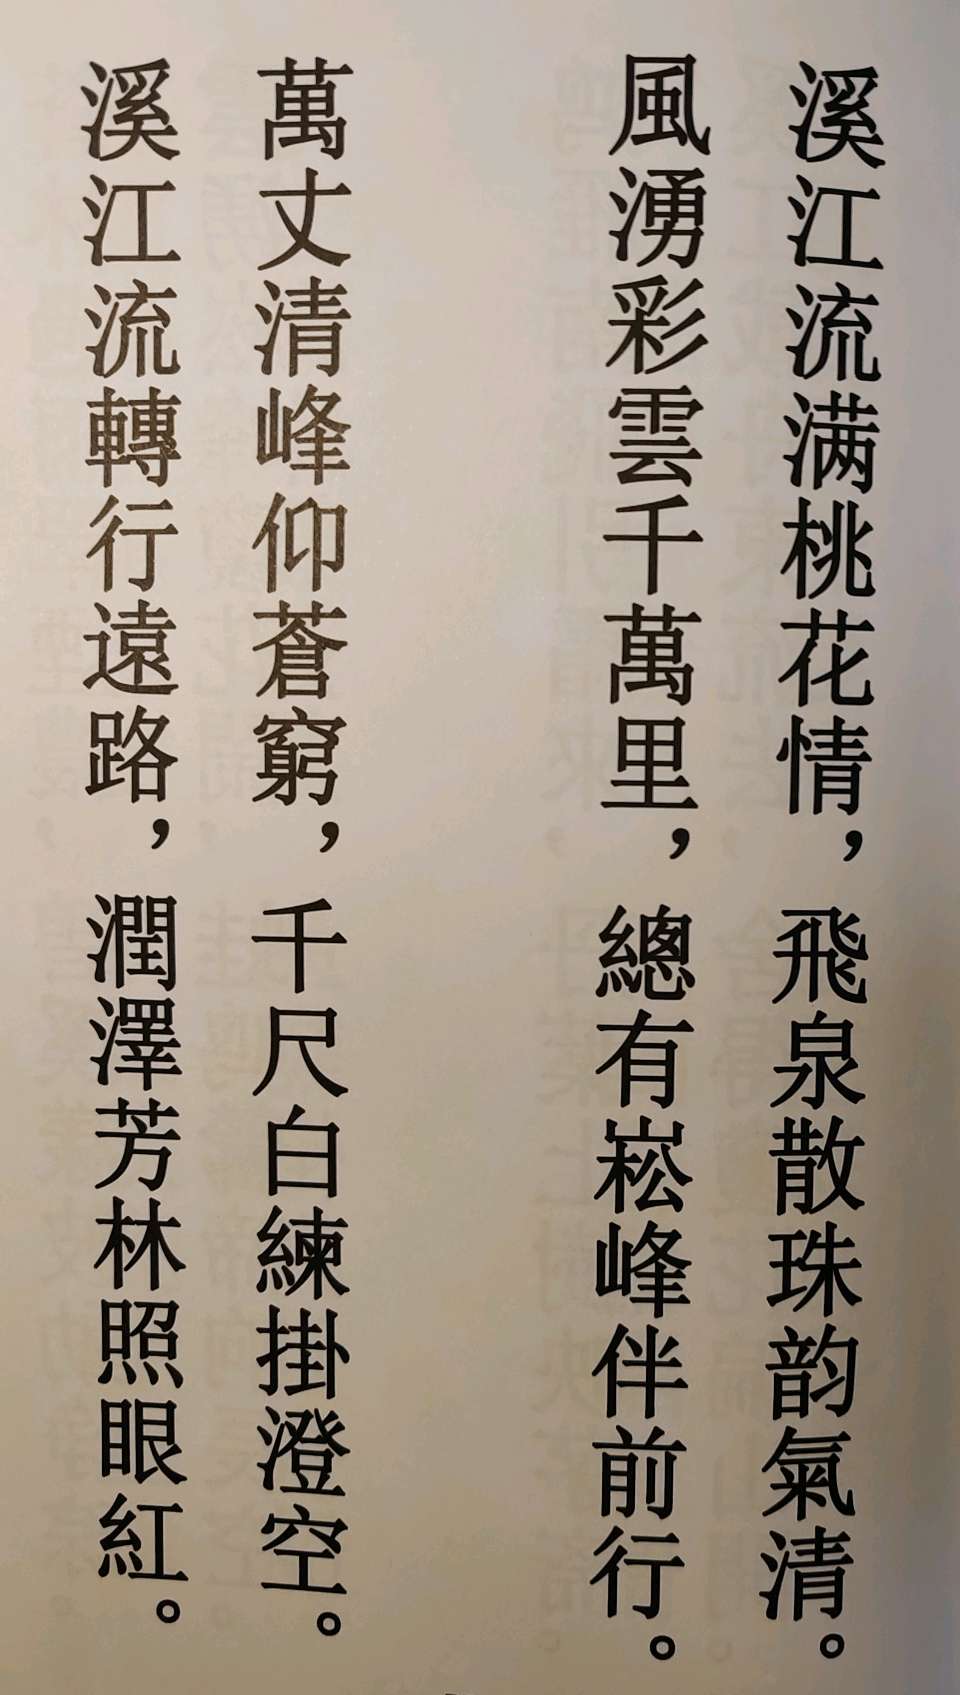 溪江流满桃花情，飛泉散珠韵氣清。
風湧彩雲千萬里，總有崧峰伴前行。
萬丈清峰仰蒼窮，千尺白練掛澄空。
溪江流轉行遠路，潤澤芳林照眼紅。